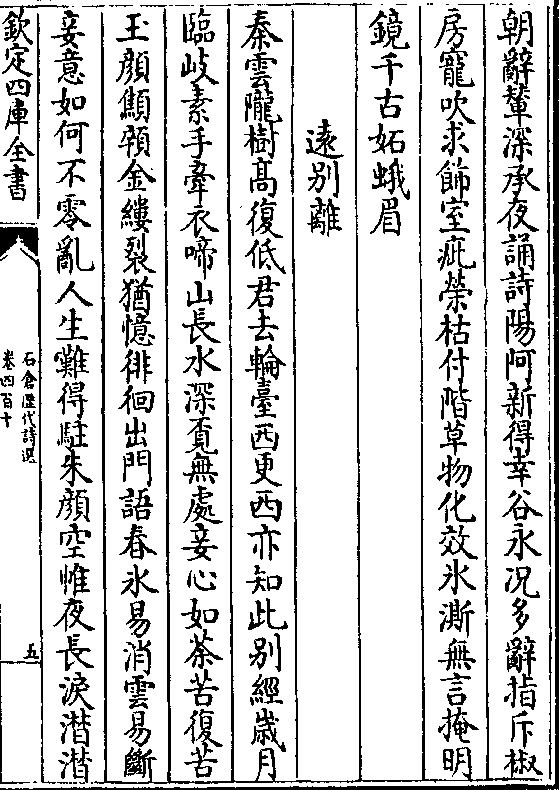 朝辭輦深承夜誦詩陽阿新得幸谷永况多辭指斥椒
房寵吹求飾室疵榮枯付階草物化效氷澌無言掩明
鏡千古妬蛾眉
遠别離
秦雲隴樹髙復低君去輪臺西更西亦知此别經歲月
臨岐素手牽衣啼山長水深覔無處妾心如荼苦復苦
玉顔顦顇金縷裂猶憶徘徊出門語春氷易消雲易斷
妾意如何不零亂人生難得駐朱顔空帷夜長淚潛潛
欽定四庫全書
石倉歷代詩選
卷四百十
五